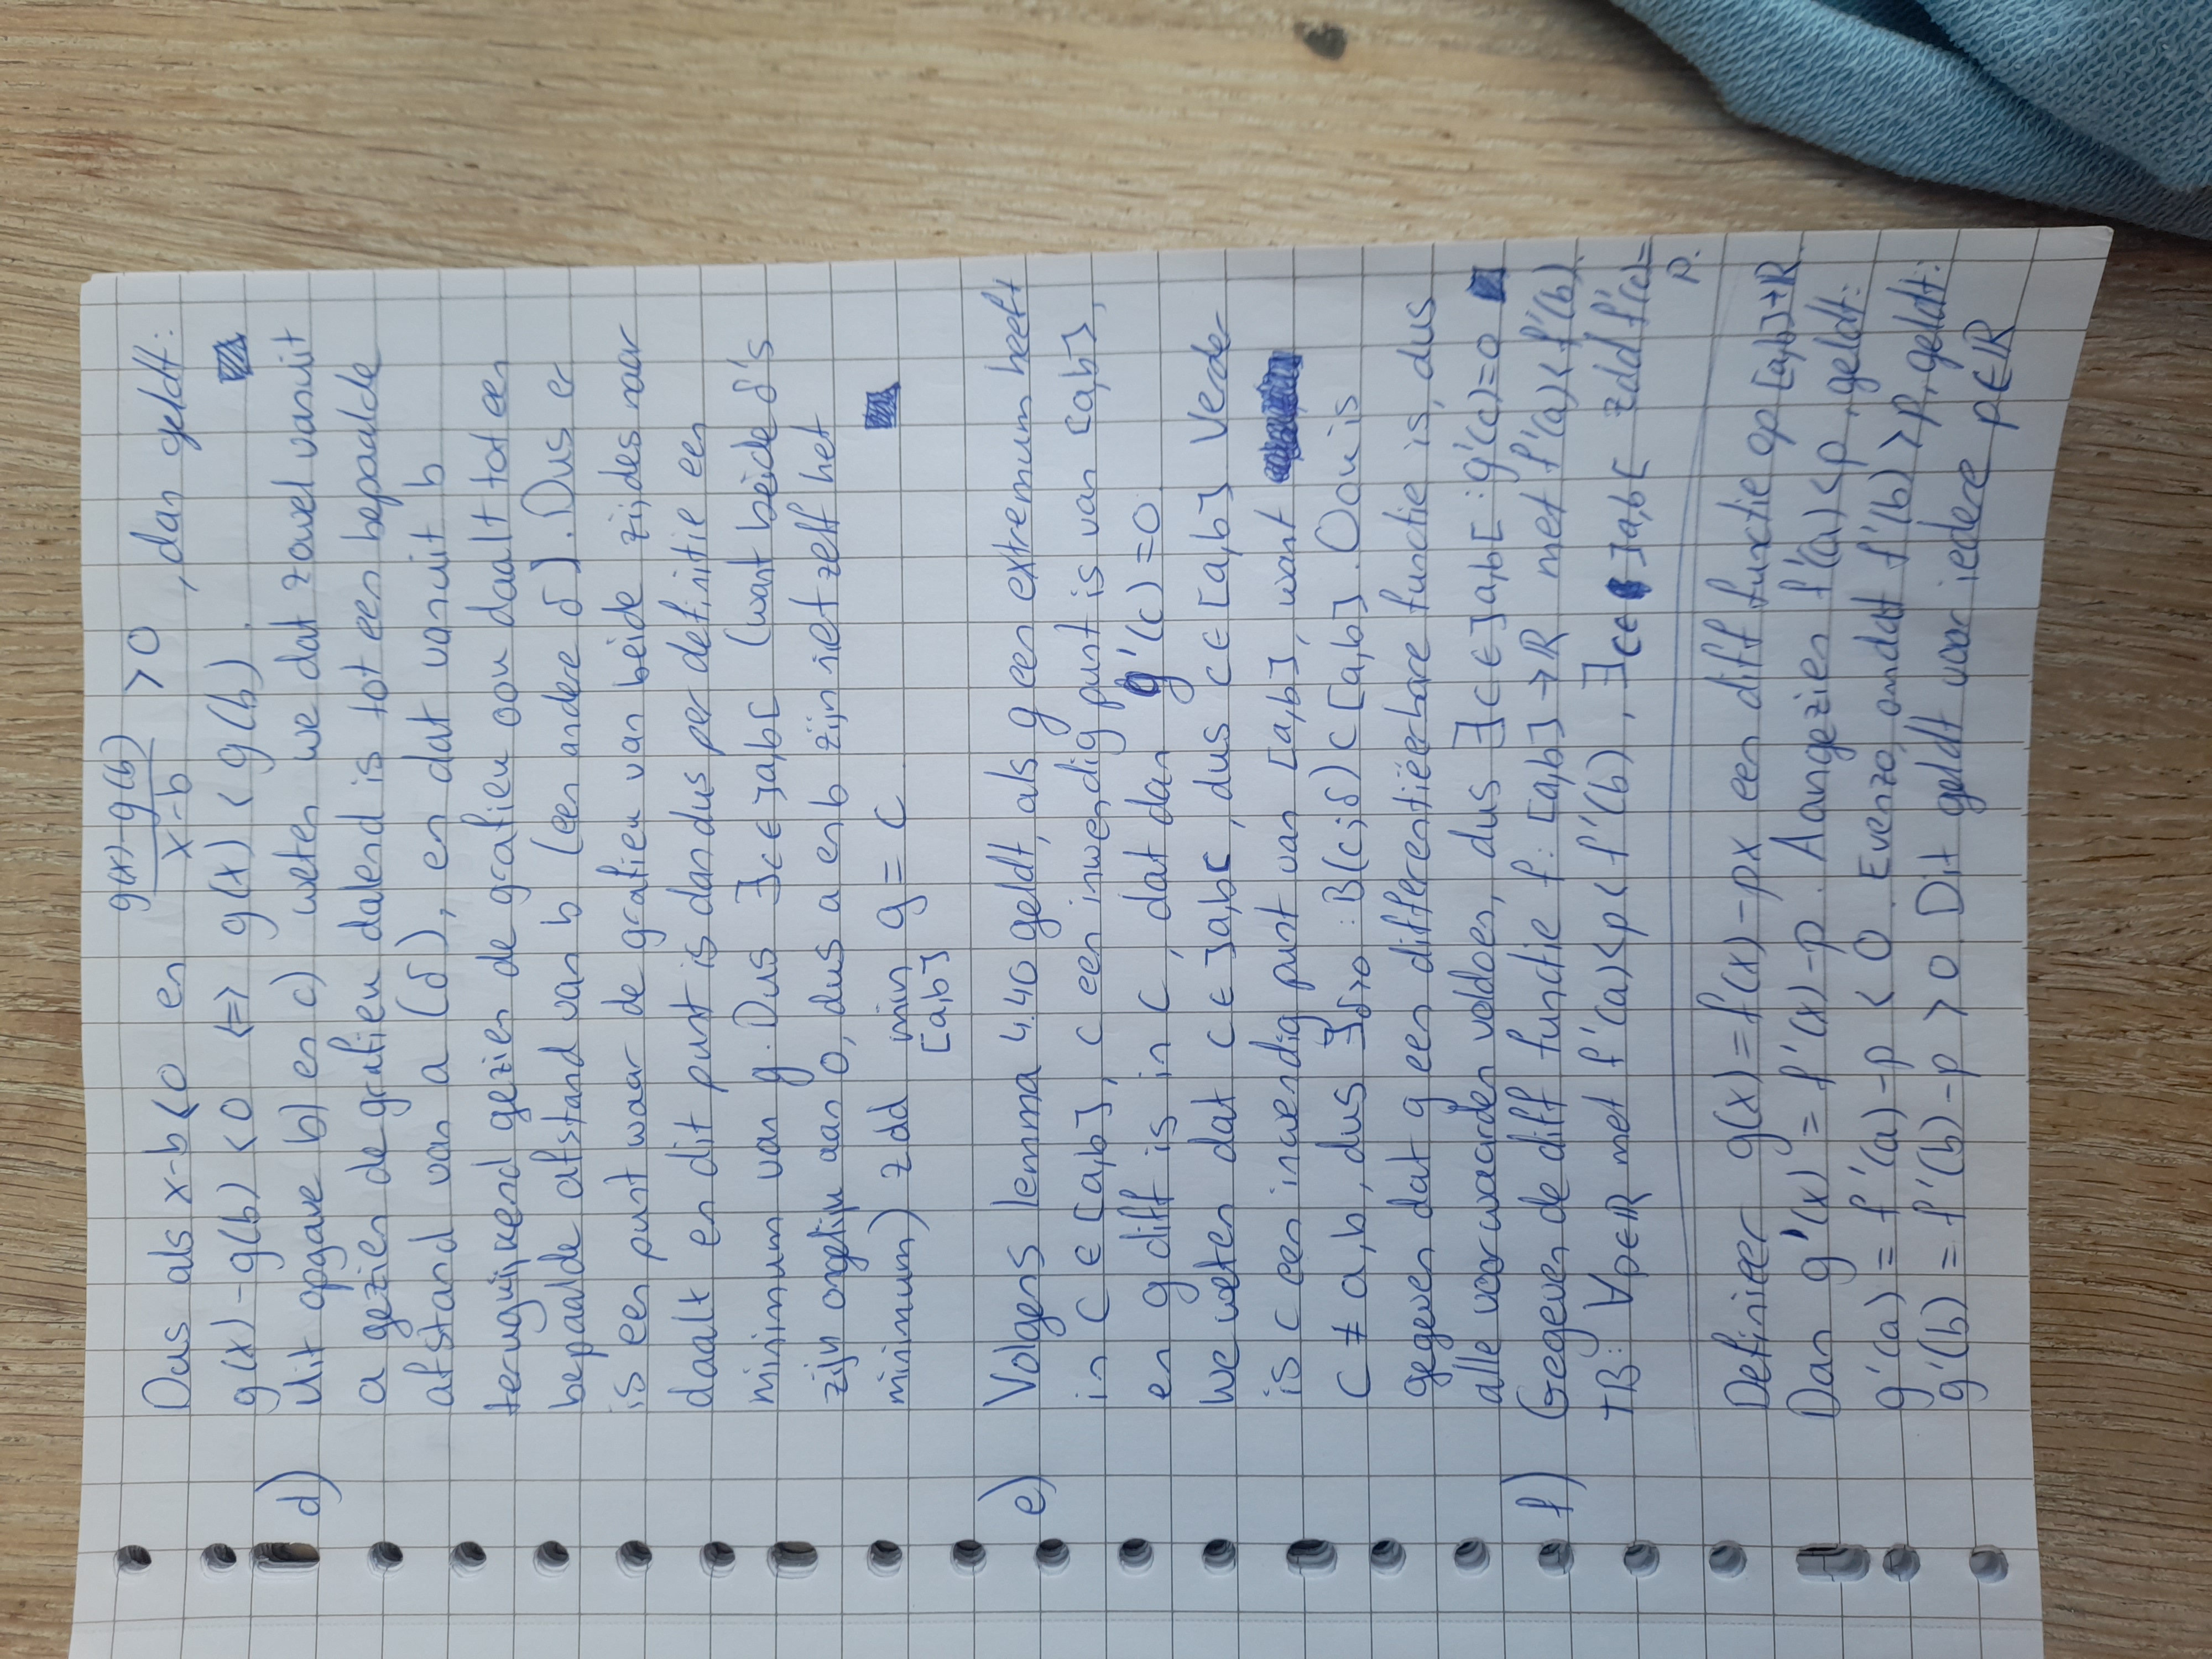 Dus als x-b<0 en g(x)-g(b)/x-b > 0, dan geldt:
g(x)-g(b) < 0 <=> g(x) < g(b).
d) Uit opgave b) en c) weten we dat zowel vanuit
a gezien de grafiek dalend is tot een bepaalde
afstand van a (δ), en dat vanuit b
terugkijkend gezien de grafiek ook daalt tot een
bepaalde afstand van b (een andere δ). Dus er
is een punt waar de grafiek van beide zijdes naar
daalt en dit punt is dan dus per definitie een
minimum van g. Dus ∃c∈]a,b[ (want beide δ's
zijn ongelijk aan 0, dus a en b zijn niet zelf het
minimum) zdd min g = c
[a,b]
e) Volgens lemma 4.40 geldt, als g een extremum heeft
in c ∈ [a,b], c een inwendig punt is van [a,b],
en g diff is in c, dat dan g'(c)=0.
We weten dat c∈]a,b[, dus c∈[a,b] Verder
is c een inwendig punt van [a,b], want
c ≠ a,b, dus ∃δ>0: B(c;δ)⊂[a,b]. Ook is
gegeven dat g een differentieerbare functie is, dus
alle voorwaarden voldoen, dus ∃c∈]a,b[: g'(c)=0
f) Gegeven de diff functie f: [a,b]→ℝ met f'(a)<f'(b).
TB: ∀p∈ℝ met f'(a)<p<f'(b), ∃c∈]a,b[ zdd f'(c)=
p.
Definieer g(x)=f(x)-px een diff functie op [a,b]→ℝ
Dan g'(x) = f'(x)-p. Aangezien f'(a)<p, geldt:
g'(a) = f'(a)-p < 0. Evenzo, omdat f'(b)>p, geldt:
g'(b) = f'(b)-p > 0. Dit geldt voor iedere p∈ℝ